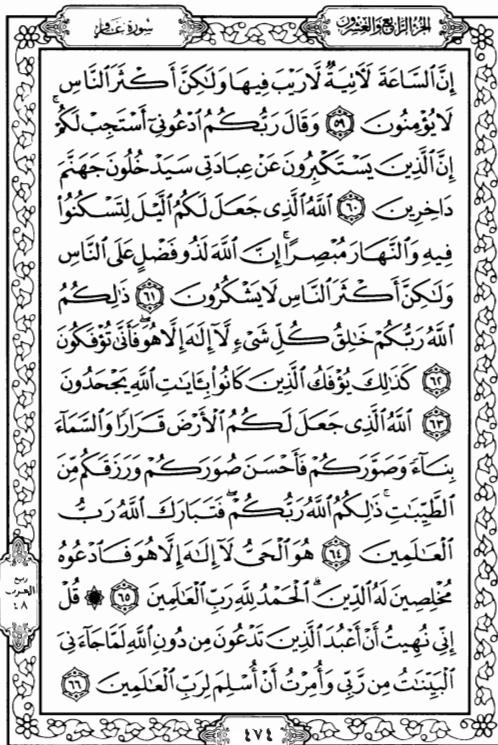 الجزء الرابع والعشرون
سورة غافر
إِنَّ ٱلسَّاعَةَ لَـَٔاتِيَةٌ لَّا رَيْبَ فِيهَا وَلَـٰكِنَّ أَكْثَرَ ٱلنَّاسِ
لَا يُؤْمِنُونَ ٥٩ وَقَالَ رَبُّكُمُ ٱدْعُونِىٓ أَسْتَجِبْ لَكُمْ ۚ
إِنَّ ٱلَّذِينَ يَسْتَكْبِرُونَ عَنْ عِبَادَتِى سَيَدْخُلُونَ جَهَنَّمَ
دَاخِرِينَ ٦٠ ٱللَّهُ ٱلَّذِى جَعَلَ لَكُمُ ٱلَّيْلَ لِتَسْكُنُوا۟
فِيهِ وَٱلنَّهَارَ مُبْصِرًا ۚ إِنَّ ٱللَّهَ لَذُو فَضْلٍ عَلَى ٱلنَّاسِ
وَلَـٰكِنَّ أَكْثَرَ ٱلنَّاسِ لَا يَشْكُرُونَ ٦١ ذَٰلِكُمُ
ٱللَّهُ رَبُّكُمْ خَـٰلِقُ كُلِّ شَىْءٍ لَّآ إِلَـٰهَ إِلَّا هُوَ ۖ فَأَنَّىٰ تُؤْفَكُونَ
٦٢ كَذَٰلِكَ يُؤْفَكُ ٱلَّذِينَ كَانُوا۟ بِـَٔايَـٰتِ ٱللَّهِ يَجْحَدُونَ
٦٣ ٱللَّهُ ٱلَّذِى جَعَلَ لَكُمُ ٱلْأَرْضَ قَرَارًا وَٱلسَّمَآءَ
بِنَآءً وَصَوَّرَكُمْ فَأَحْسَنَ صُوَرَكُمْ وَرَزَقَكُم مِّنَ
ٱلطَّيِّبَـٰتِ ۚ ذَٰلِكُمُ ٱللَّهُ رَبُّكُمْ ۖ فَتَبَارَكَ ٱللَّهُ رَبُّ
ٱلْعَـٰلَمِينَ ٦٤ هُوَ ٱلْحَىُّ لَآ إِلَـٰهَ إِلَّا هُوَ فَٱدْعُوهُ
مُخْلِصِينَ لَهُ ٱلدِّينَ ۗ ٱلْحَمْدُ لِلَّهِ رَبِّ ٱلْعَـٰلَمِينَ ٦٥ ۞ قُلْ
إِنِّى نُهِيتُ أَنْ أَعْبُدَ ٱلَّذِينَ تَدْعُونَ مِن دُونِ ٱللَّهِ لَمَّا جَآءَنِىَ
ٱلْبَيِّنَـٰتُ مِن رَّبِّى وَأُمِرْتُ أَنْ أُسْلِمَ لِرَبِّ ٱلْعَـٰلَمِينَ ٦٦
ربع
الحزب
٤٨
٤٧٤